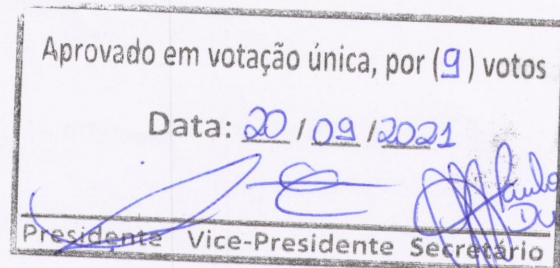 Aprovado em votação única, por (9) votos
Data: 20 / 09 / 2021
Paulo
Presidente Vice-Presidente Secretário